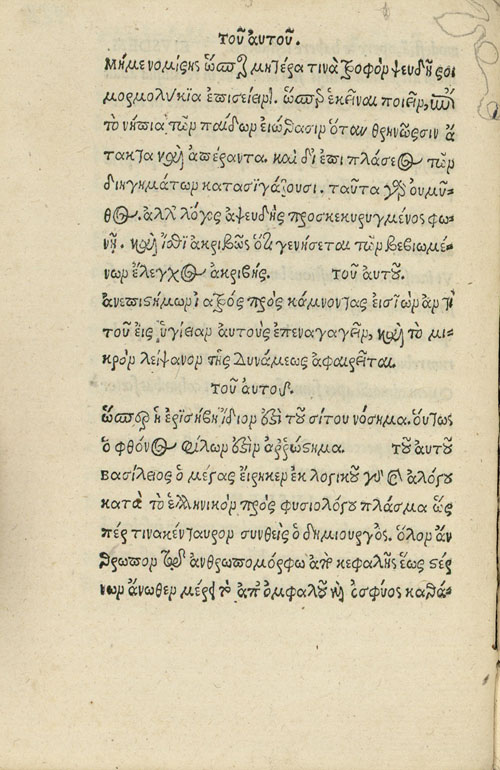 τοῦ αὐτοῦ.
Μή με νομίσῃς ὥσπερ μητέρα τινὰ ἢ τροφὸν ψευδῆ σοι
μορμολύκια ἐπισείειν. ὥσπερ ἐκεῖναι ποιεῖν, ἐπὶ
τὸ νήπια τῶν παίδων εἰώθασιν ὅταν θρηνῶσιν ἄ-
τακτα καὶ ἀπέραντα. καὶ δι' ἐπιπλάστων
διηγημάτων κατασιγάζουσι. ταῦτα γὰρ οὐ μῦ-
θος. ἀλλὰ λόγος ἀψευδὴς προσκεκηρυγμένος φω-
νῇ. καὶ ἴσθι ἀκριβῶς ὅτι γενήσεται τῶν βεβιωμέ-
νων ἔλεγχος ἀκριβής. τοῦ αὐτοῦ.
ἀνεπιστήμων ἰατρὸς πρὸς κάμνοντας εἰσιὼν ἀντὶ
τοῦ εἰς ὑγίειαν αὐτοὺς ἐπαναγαγεῖν, καὶ τὸ μι-
κρὸν λείψανον τῆς δυνάμεως ἀφαιρεῖται.
τοῦ αὐτοῦ.
ὥσπερ ἡ ἐρισήβη ἴδιόν ἐστι τοῦ σίτου νόσημα. οὕτως
ὁ φθόνος φίλων ἐστὶν ἀρρώστημα. τοῦ αὐτοῦ
βασίλειος ὁ μέγας εἴρηκεν ἐκ λογικοῦ γὰρ καὶ ἀλόγου
κατὰ τὸ ἑλληνικὸν πρὸς φυσιολόγου πλάσμα ὥς
πέρ τινα κένταυρον συνθεὶς ὁ δημιουργός. ὅλον ἄν
θρωπον τὸν ἀνθρωπόμορφον ἀπὸ κεφαλῆς ἕως στέρ
νων ἄνωθεν μέρος τὸ ἀπ' ὀμφαλοῦ καὶ ὀσφύος καθά-